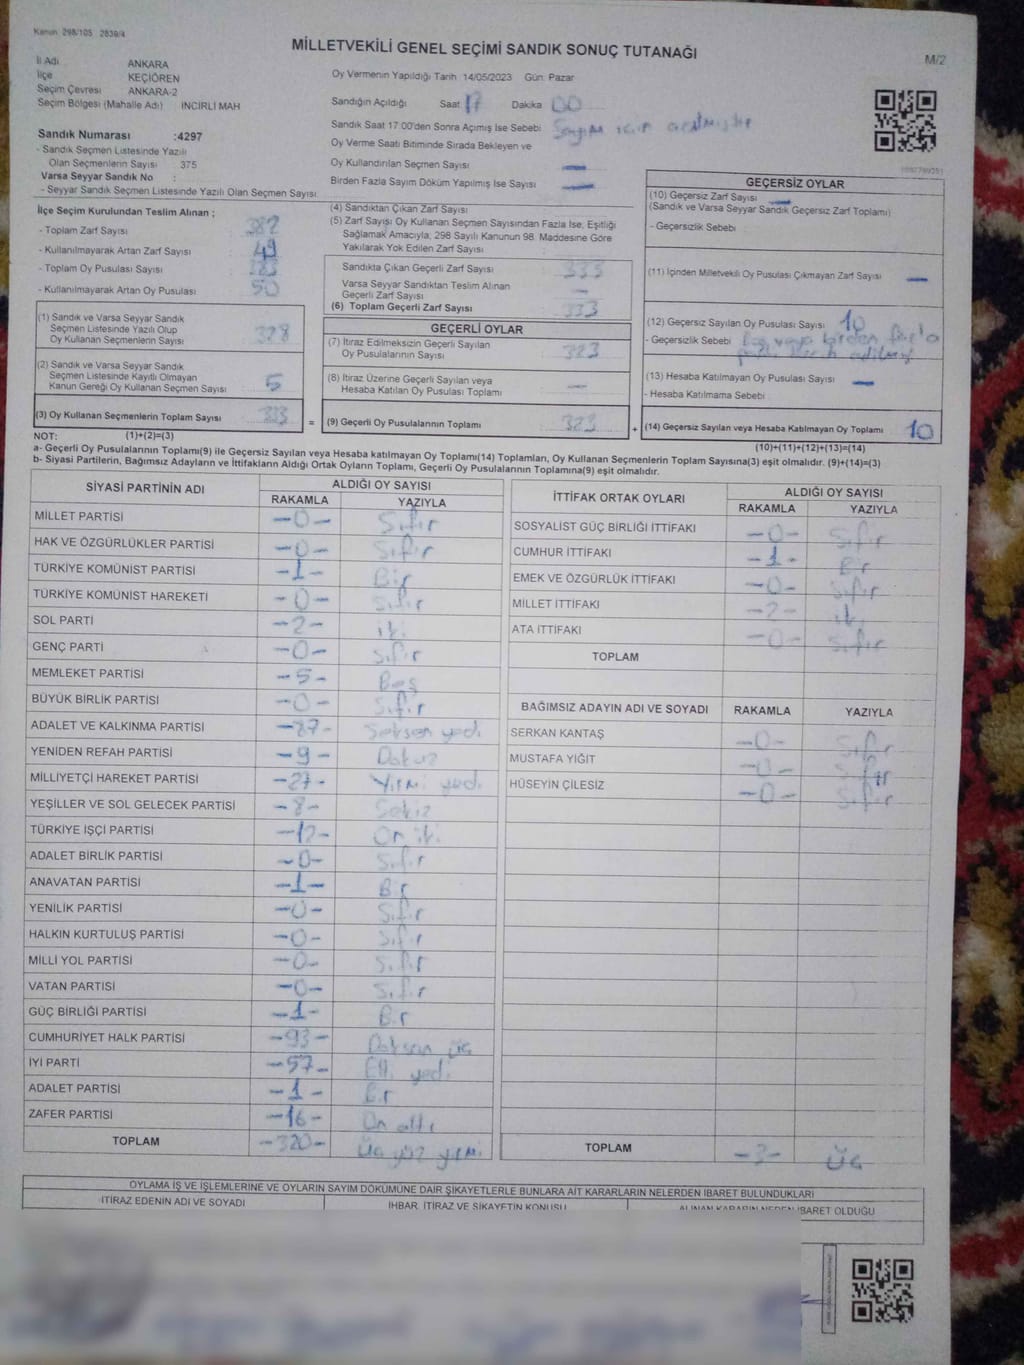 Kanun 298/105 2839/4
MİLLETVEKİLİ GENEL SEÇİMİ SANDIK SONUÇ TUTANAĞI
M/2
İl Adı ANKARA
İlçe KEÇİÖREN
Seçim Çevresi ANKARA-2
Seçim Bölgesi (Mahalle Adı) İNCİRLİ MAH
Sandık Numarası :4297
- Sandık Seçmen Listesinde Yazılı
Olan Seçmenlerin Sayısı 375
Varsa Seyyar Sandık No :
- Seyyar Sandık Seçmen Listesinde Yazılı Olan Seçmen Sayısı
Oy Vermenin Yapıldığı Tarih 14/05/2023 Gün Pazar
Sandığın Açıldığı Saat 17 Dakika 00
Sandık Saat 17:00'den Sonra Açımış İse Sebebi Sayım için açılmıştır
Oy Verme Saati Bitiminde Sırada Bekleyen ve
Oy Kullandırılan Seçmen Sayısı —
Birden Fazla Sayım Döküm Yapılmış İse Sayısı —
İlçe Seçim Kurulundan Teslim Alınan ;
- Toplam Zarf Sayısı 382
- Kullanılmayarak Artan Zarf Sayısı 49
- Toplam Oy Pusulası Sayısı 383
- Kullanılmayarak Artan Oy Pusulası 50
(1) Sandık ve Varsa Seyyar Sandık
Seçmen Listesinde Yazılı Olup
Oy Kullanan Seçmenlerin Sayısı 328
(2) Sandık ve Varsa Seyyar Sandık
Seçmen Listesinde Kayıtlı Olmayan
Kanun Gereği Oy Kullanan Seçmen Sayısı 5
(3) Oy Kullanan Seçmenlerin Toplam Sayısı 333 =
(4) Sandıktan Çıkan Zarf Sayısı
(5) Zarf Sayısı Oy Kullanan Seçmen Sayısından Fazla İse, Eşitliği
Sağlamak Amacıyla; 298 Sayılı Kanunun 98. Maddesine Göre
Yakılarak Yok Edilen Zarf Sayısı
Sandıkta Çıkan Geçerli Zarf Sayısı 333
Varsa Seyyar Sandıktan Teslim Alınan
Geçerli Zarf Sayısı —
(6) Toplam Geçerli Zarf Sayısı 333
GEÇERLİ OYLAR
(7) İtiraz Edilmeksizin Geçerli Sayılan
Oy Pusulalarının Sayısı 323
(8) İtiraz Üzerine Geçerli Sayılan veya
Hesaba Katılan Oy Pusulası Toplamı —
(9) Geçerli Oy Pusulalarının Toplamı 323 +
GEÇERSİZ OYLAR
(10) Geçersiz Zarf Sayısı —
(Sandık ve Varsa Seyyar Sandık Geçersiz Zarf Toplamı)
- Geçersizlik Sebebi
(11) İçinden Milletvekili Oy Pusulası Çıkmayan Zarf Sayısı —
(12) Geçersiz Sayılan Oy Pusulası Sayısı 10
- Geçersizlik Sebebi Boş veya birden fazla
(13) Hesaba Katılmayan Oy Pusulası Sayısı —
- Hesaba Katılmama Sebebi
(14) Geçersiz Sayılan veya Hesaba Katılmayan Oy Toplamı 10
NOT: (1)+(2)=(3) (10)+(11)+(12)+(13)=(14)
a- Geçerli Oy Pusulalarının Toplamı(9) ile Geçersiz Sayılan veya Hesaba katılmayan Oy Toplamı(14) Toplamları, Oy Kullanan Seçmenlerin Toplam Sayısına(3) eşit olmalıdır. (9)+(14)=(3)
b- Siyasi Partilerin, Bağımsız Adayların ve İttifakların Aldığı Ortak Oyların Toplamı, Geçerli Oy Pusulalarının Toplamına(9) eşit olmalıdır.
SİYASİ PARTİNİN ADI ALDIĞI OY SAYISI
RAKAMLA YAZIYLA
MİLLET PARTİSİ -0- Sıfır
HAK VE ÖZGÜRLÜKLER PARTİSİ -0- Sıfır
TÜRKİYE KOMÜNİST PARTİSİ -1- Bir
TÜRKİYE KOMÜNİST HAREKETİ -0- Sıfır
SOL PARTİ -2- iki
GENÇ PARTİ -0- Sıfır
MEMLEKET PARTİSİ -5- Beş
BÜYÜK BİRLİK PARTİSİ -0- Sıfır
ADALET VE KALKINMA PARTİSİ -87- Seksen yedi
YENİDEN REFAH PARTİSİ -9- Dokuz
MİLLİYETÇİ HAREKET PARTİSİ -27- Yirmi yedi
YEŞİLLER VE SOL GELECEK PARTİSİ -8- Sekiz
TÜRKİYE İŞÇİ PARTİSİ -12- On iki
ADALET BİRLİK PARTİSİ -0- Sıfır
ANAVATAN PARTİSİ -1- Bir
YENİLİK PARTİSİ -0- Sıfır
HALKIN KURTULUŞ PARTİSİ -0- Sıfır
MİLLİ YOL PARTİSİ -0- Sıfır
VATAN PARTİSİ -0- Sıfır
GÜÇ BİRLİĞİ PARTİSİ -1- Bir
CUMHURİYET HALK PARTİSİ -93- Doksan üç
İYİ PARTİ -57- Elli yedi
ADALET PARTİSİ -1- Bir
ZAFER PARTİSİ -16- On altı
TOPLAM -320- Üç yüz yirmi
İTTİFAK ORTAK OYLARI ALDIĞI OY SAYISI
RAKAMLA YAZIYLA
SOSYALİST GÜÇ BİRLİĞİ İTTİFAKI -0- Sıfır
CUMHUR İTTİFAKI -1- Bir
EMEK VE ÖZGÜRLÜK İTTİFAKI -0- Sıfır
MİLLET İTTİFAKI -2- iki
ATA İTTİFAKI -0- Sıfır
TOPLAM
BAĞIMSIZ ADAYIN ADI VE SOYADI RAKAMLA YAZIYLA
SERKAN KANTAŞ -0- Sıfır
MUSTAFA YİĞİT -0- Sıfır
HÜSEYİN ÇİLESİZ -0- Sıfır
TOPLAM -3- Üç
OYLAMA İŞ VE İŞLEMLERİNE VE OYLARIN SAYIM DÖKÜMÜNE DAİR ŞİKAYETLERLE BUNLARA AİT KARARLARIN NELERDEN İBARET BULUNDUKLARI
İTİRAZ EDENİN ADI VE SOYADI İHBAR, İTİRAZ VE ŞİKAYETİN KONUSU ALINAN KARARIN NEDEN İBARET OLDUĞU